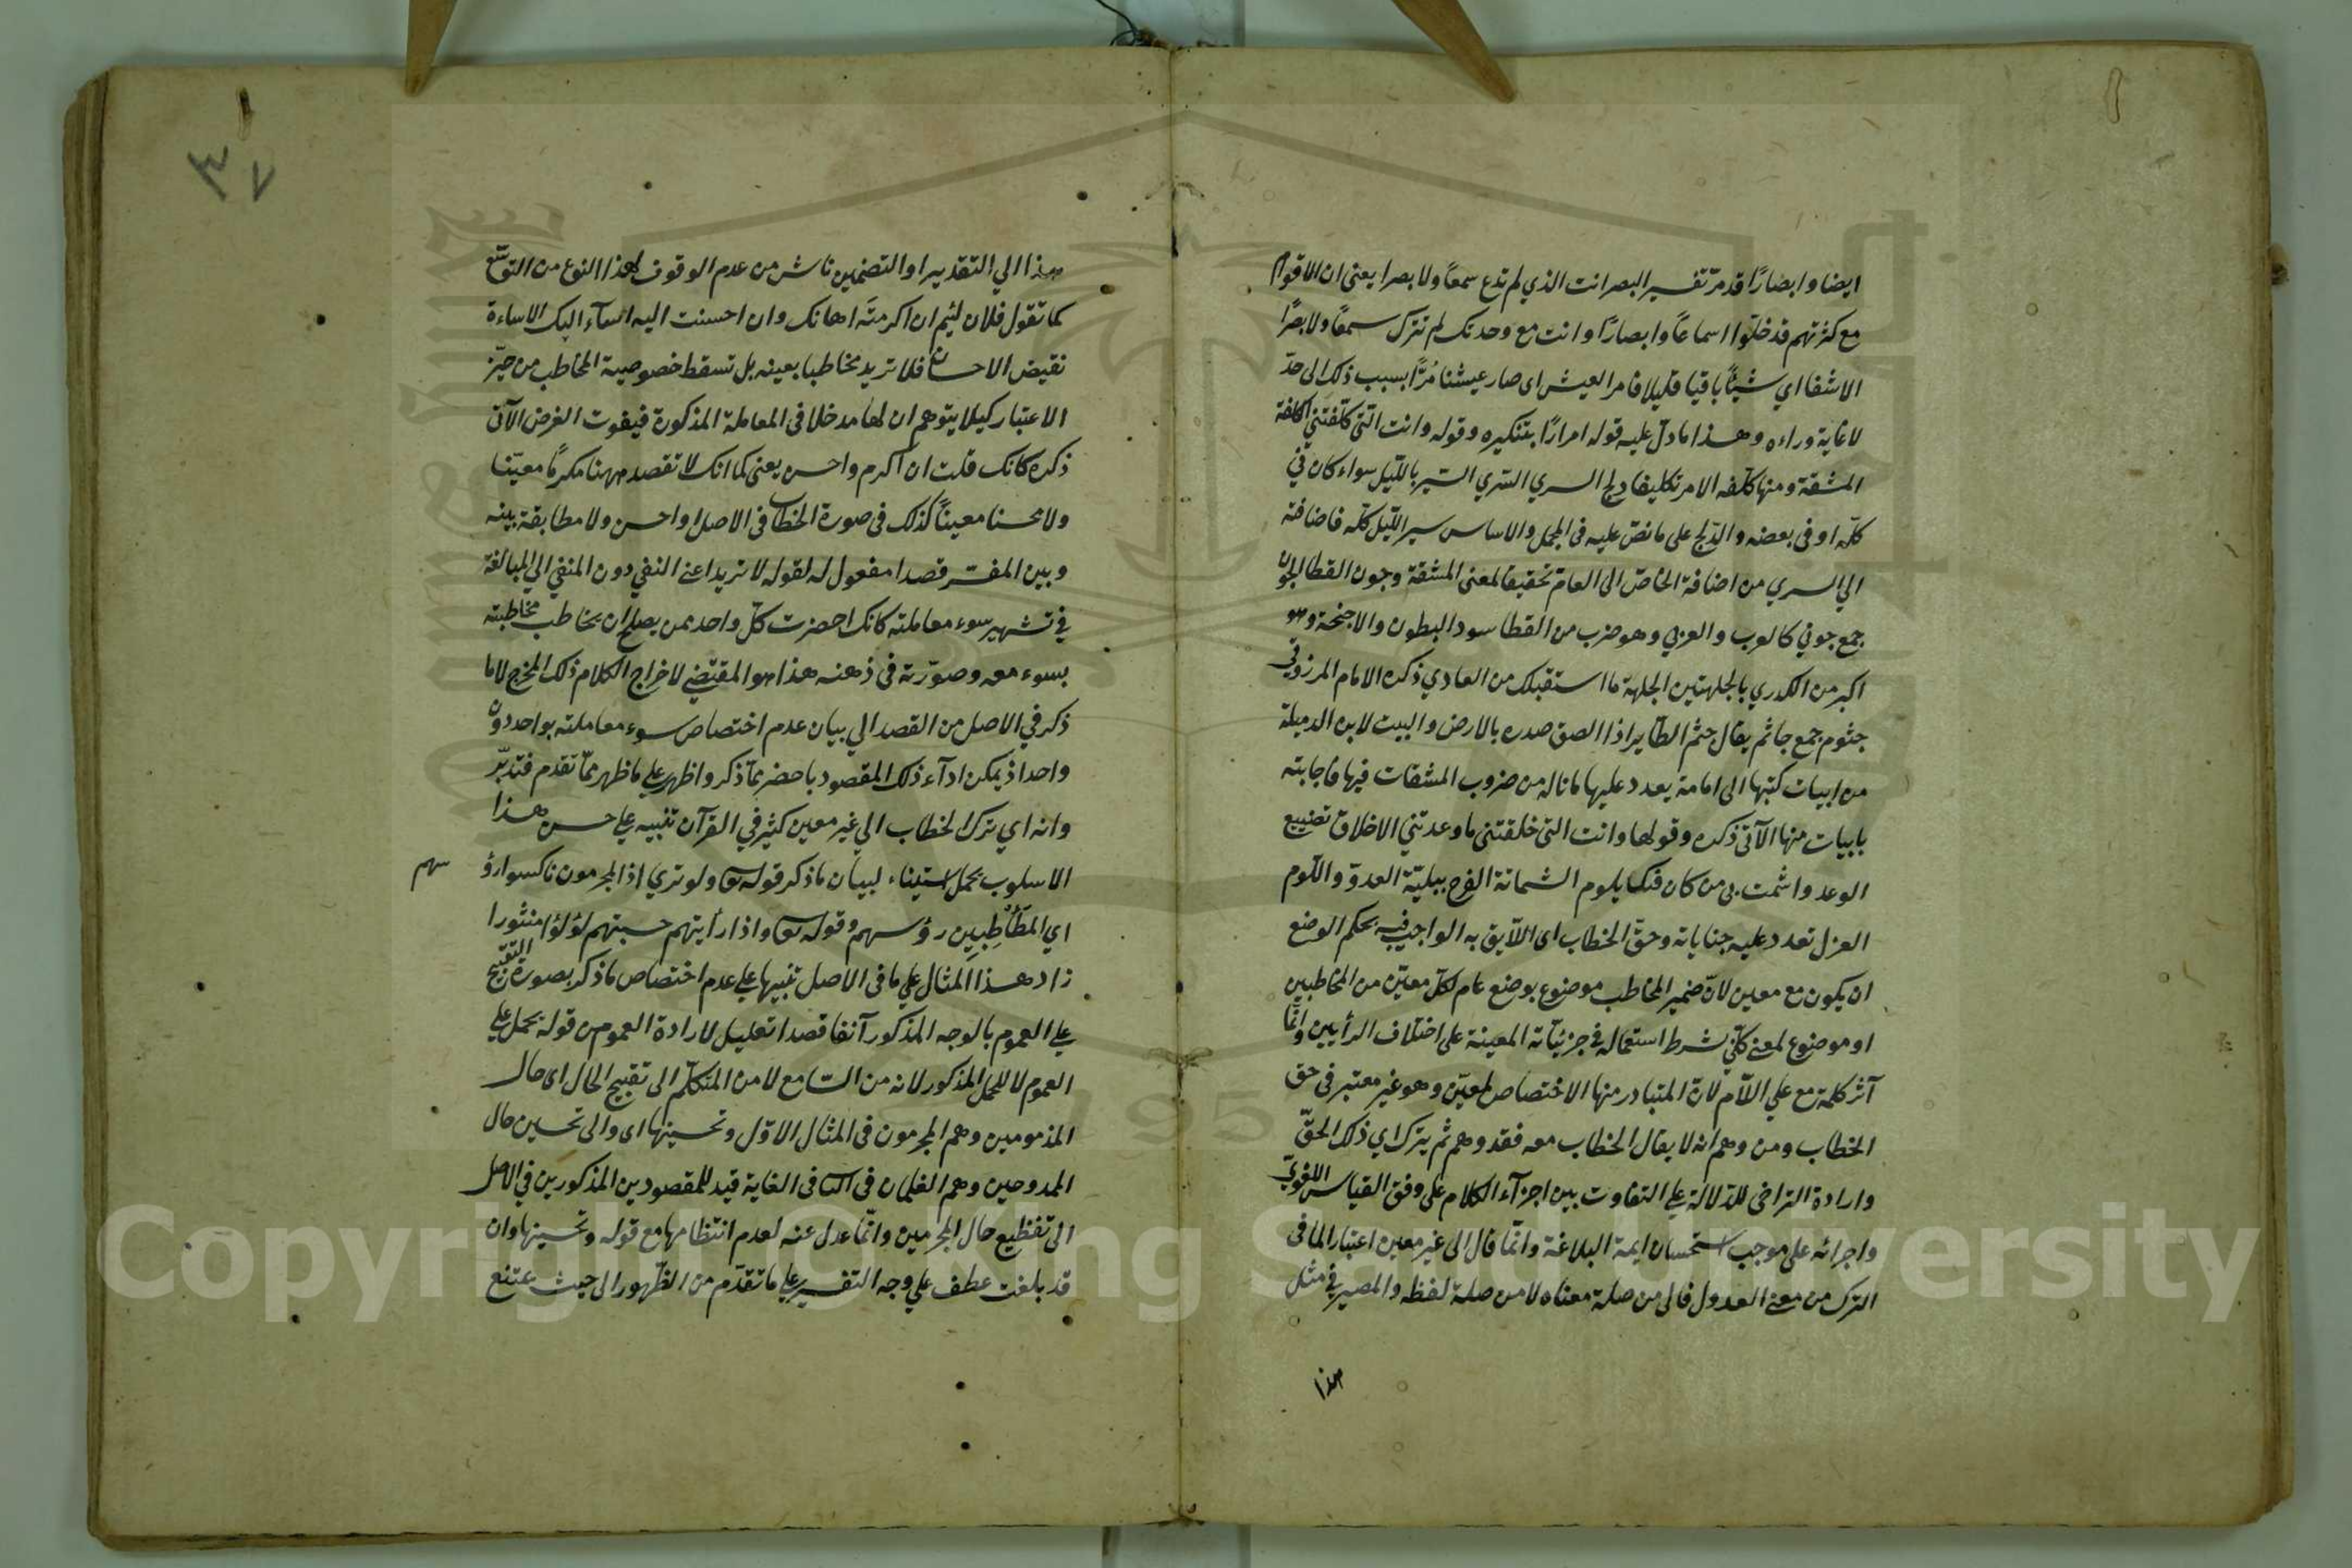 ايضا وابصارًا قد مرّ تفسير البصر انت الذي لم تدع سمعاً ولا بصرا يعنى ان الاقوام
مع كثرتهم قد خلّوا اسماعًا وابصارًا وانت مع وحدتك لم تترك سمعًا ولا بصرًا
الا شفا اي شيئًا باقيا قليلا فامر العيش اى صار عيشنا مُرًّا بسبب ذلك الى حدّ
لا غاية وراءه وهذا ما دلّ عليه قوله امرارًا بتنكيره وقوله وانت التى كلّفتني كلفة
المشقة ومنها كلّفه الامر تكليفا دلج السري السري السير بالليل سواء كان في
كلّه او فى بعضه والدّلج على ما نصّ عليه فى المجمل والاساس سير اللّيل كلّه فاضافته
الي السري من اضافة الخاصّ الى العامّ تحقيقا لمعنى المشقة وجون القطا الجون
جمع جوني كالعرب والعربي وهو ضرب من القطا سود البطون والاجنحة وهو
اكبر من الكدري بالجلهتين الجلهة ما استقبلك من الوادي ذكره الامام المرزوقي
جثوم جمع جاثم يقال جثم الطّاير اذا الصق صدره بالارض والبيت لابن الدمينة
من ابيات كتبها الى امامة يعدد عليها ما ناله من ضروب المشقات فيها فاجابته
بابيات منها الآتى ذكره وقولها وانت التى خلفتنى ما وعدتني الاخلاف تضييع
الوعد واشمت بى من كان فيك يلوم الشماتة الفرح ببليّة العدوّ واللّوم
العزل تعدد عليه جناياته وحقّ الخطاب اى اللّايق به الواجب فيه بحكم الوضع
ان يكون مع معين لانّ ضمير المخاطب موضوع بوضع عام لكل معيّن من المخاطبين
او موضوع لمعنى كلّي شرط استعماله في جزئيّاته المعينة على اختلاف الرأيين وانّما
آثر كلمة مع علي اللّام لانّ المتبادر منها الاختصاص لمعيّن وهو غير معتبر فى حق
الخطاب ومن وهم انه لا يقال الخطاب معه فقد وهم ثم يترك اي ذلك الحقّ
وارادة التراخى للدّلالة علي التفاوت بين اجزآء الكلام على وفق القياس اللغوي
واجرائه على موجب استحسان ايمة البلاغة وانّما قال الى غير معين اعتبارا لما فى
الترك من معنى العدول فالى من صلة معناه لا من صلة لفظه والمصير في مثل
هذا
٣٧
هذا الي التقدير او التضمين ناش من عدم الوقوف لهذا النوع من التوسّع
كما تقول فلان لئيم ان اكرمته اهانك وان احسنت اليه اسآء اليك الاساءة
نقيض الاحسان فلا تريد مخاطبا بعينه بل تسقط خصوصية المخاطب من حيّز
الاعتبار كيلا يتوهم ان لها مدخلا فى المعاملة المذكورة فيفوت الغرض الآتى
ذكره كانك قلت ان اكرم واحسن يعنى كما انك لا تقصد ههنا مكرمًا معيّنا
ولا محسنا معينًا كذلك فى صورة الخطاب فى الاصل او احسن ولا مطابقة بينه
وبين المفسّر قصدا مفعول له لقوله لا تريد اعنى النفي دون المنفي الي المبالغة
في تشهير سوء معاملته كانك احضرت كلّ واحد ممن يصلح ان يخاطب مخاطبته
بسوء معه وصوّرته فى ذهنه هذا هو المقتضي لاخراج الكلام ذلك المخرج لا ما
ذكر في الاصل من القصد الي بيان عدم اختصاص سوء معاملته بواحد دون
واحد اذ يمكن ادآء ذلك المقصود باحضر ممّا ذكر واظهر علي ما ظهر ممّا تقدم فتدبّر
وانه اي ترك الخطاب الي غير معين كثير في القرآن تنبيه علي حسن هذا
الاسلوب يحمل استيناء لبيان ما ذكر قوله تع ولو تري اذ المجرمون ناكسوا رؤ
سهم
اي المطأطِئين رؤسهم وقوله تع واذا رأيتهم حسبتهم لؤلؤا منثورا
زاد هذا المثال علي ما فى الاصل تنبيها على عدم اختصاص ما ذكر بصورة التقبيح
علي العموم بالوجه المذكور آنفا قصدا تعليل لارادة العموم من قوله يحمل علي
العموم لا للحمل المذكور لانه من السّامع لا من المتكلّم الى تقبيح الحال اى حال
المذمومين وهم المجرمون فى المثال الاوّل وتحسينها اى والى تحسين حال
الممدوحين وهم الغلمان فى الثا فى الغاية قيد للمقصودين المذكورين في الاصل
الى تفظيع حال المجرمين وانّما عدل عنه لعدم انتظامها مع قوله وتحسينها وان
قد بلغت عطف علي وجه التفسير علي ما تقدّم من الظّهور الى حيث يمتنع
Copyright © King Saud University